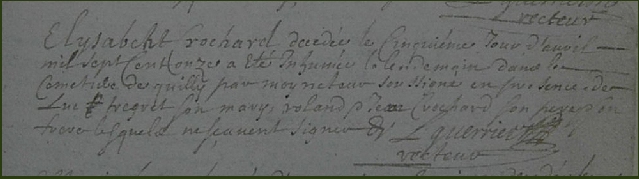 recteur
Elysabeht rochard decedée le Cinquiéme Jour d'avril
mil sept Cent onze a Eté Inhumée le lendemain dans le
Cemetiere de quilly par moy recteur soussigné en presence de
Luc tregret son mary, roland rochard son pere
frere lesquels ne sçavent signer L guerrier
recteur